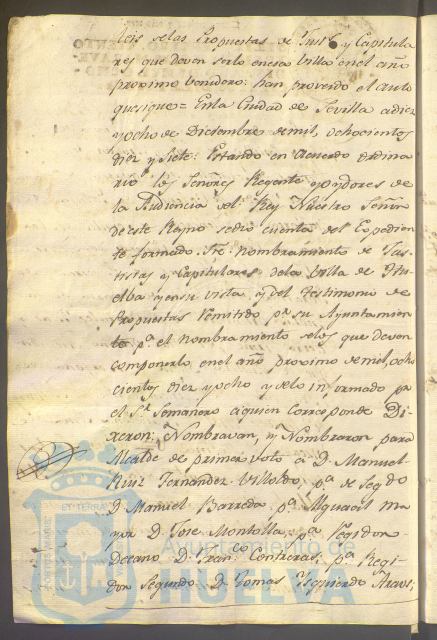 leis de las Propuestas de Just.s y Capitula
res que deven serlo en esa Villa en el año
proximo venidero: han proveido el auto
que sigue = En la Ciudad de Sevilla a diez
y ocho de Diciembre de mil, ochocientos
diez y siete: Estando en Acuerdo ordina
rio los Señores Regente y oydores de
la Audiencia del Rey Nuestro Señor
de este Reyno se dio cuenta del Expedien
te formado sre. nombramiento de Jus
ticias y Capitulares de la Villa de Hu
elba y en su vista y del testimonio de
Propuestas remitido pr. su Ayuntamien
to pa. el nombramiento de los que deven
componerlo en el año proximo de mil, ocho
cientos diez y ocho y de lo informado pr.
el Sr. Semanero a quien corresponde Di
xeron: Nombravan, y Nombraron para
Alcalde de primer voto a D. Manuel
Ruiz Fernandez Villoldo, pa. de Segdo
D. Manuel Barreda pa. Alguacil ma
yor D. Jose Montolla, pa. Regidor
Decano D. Franco. Contreras, pa. Regi
dor Segundo D. Tomas Yzquierdo
Ayuntamiento de
HUELVA